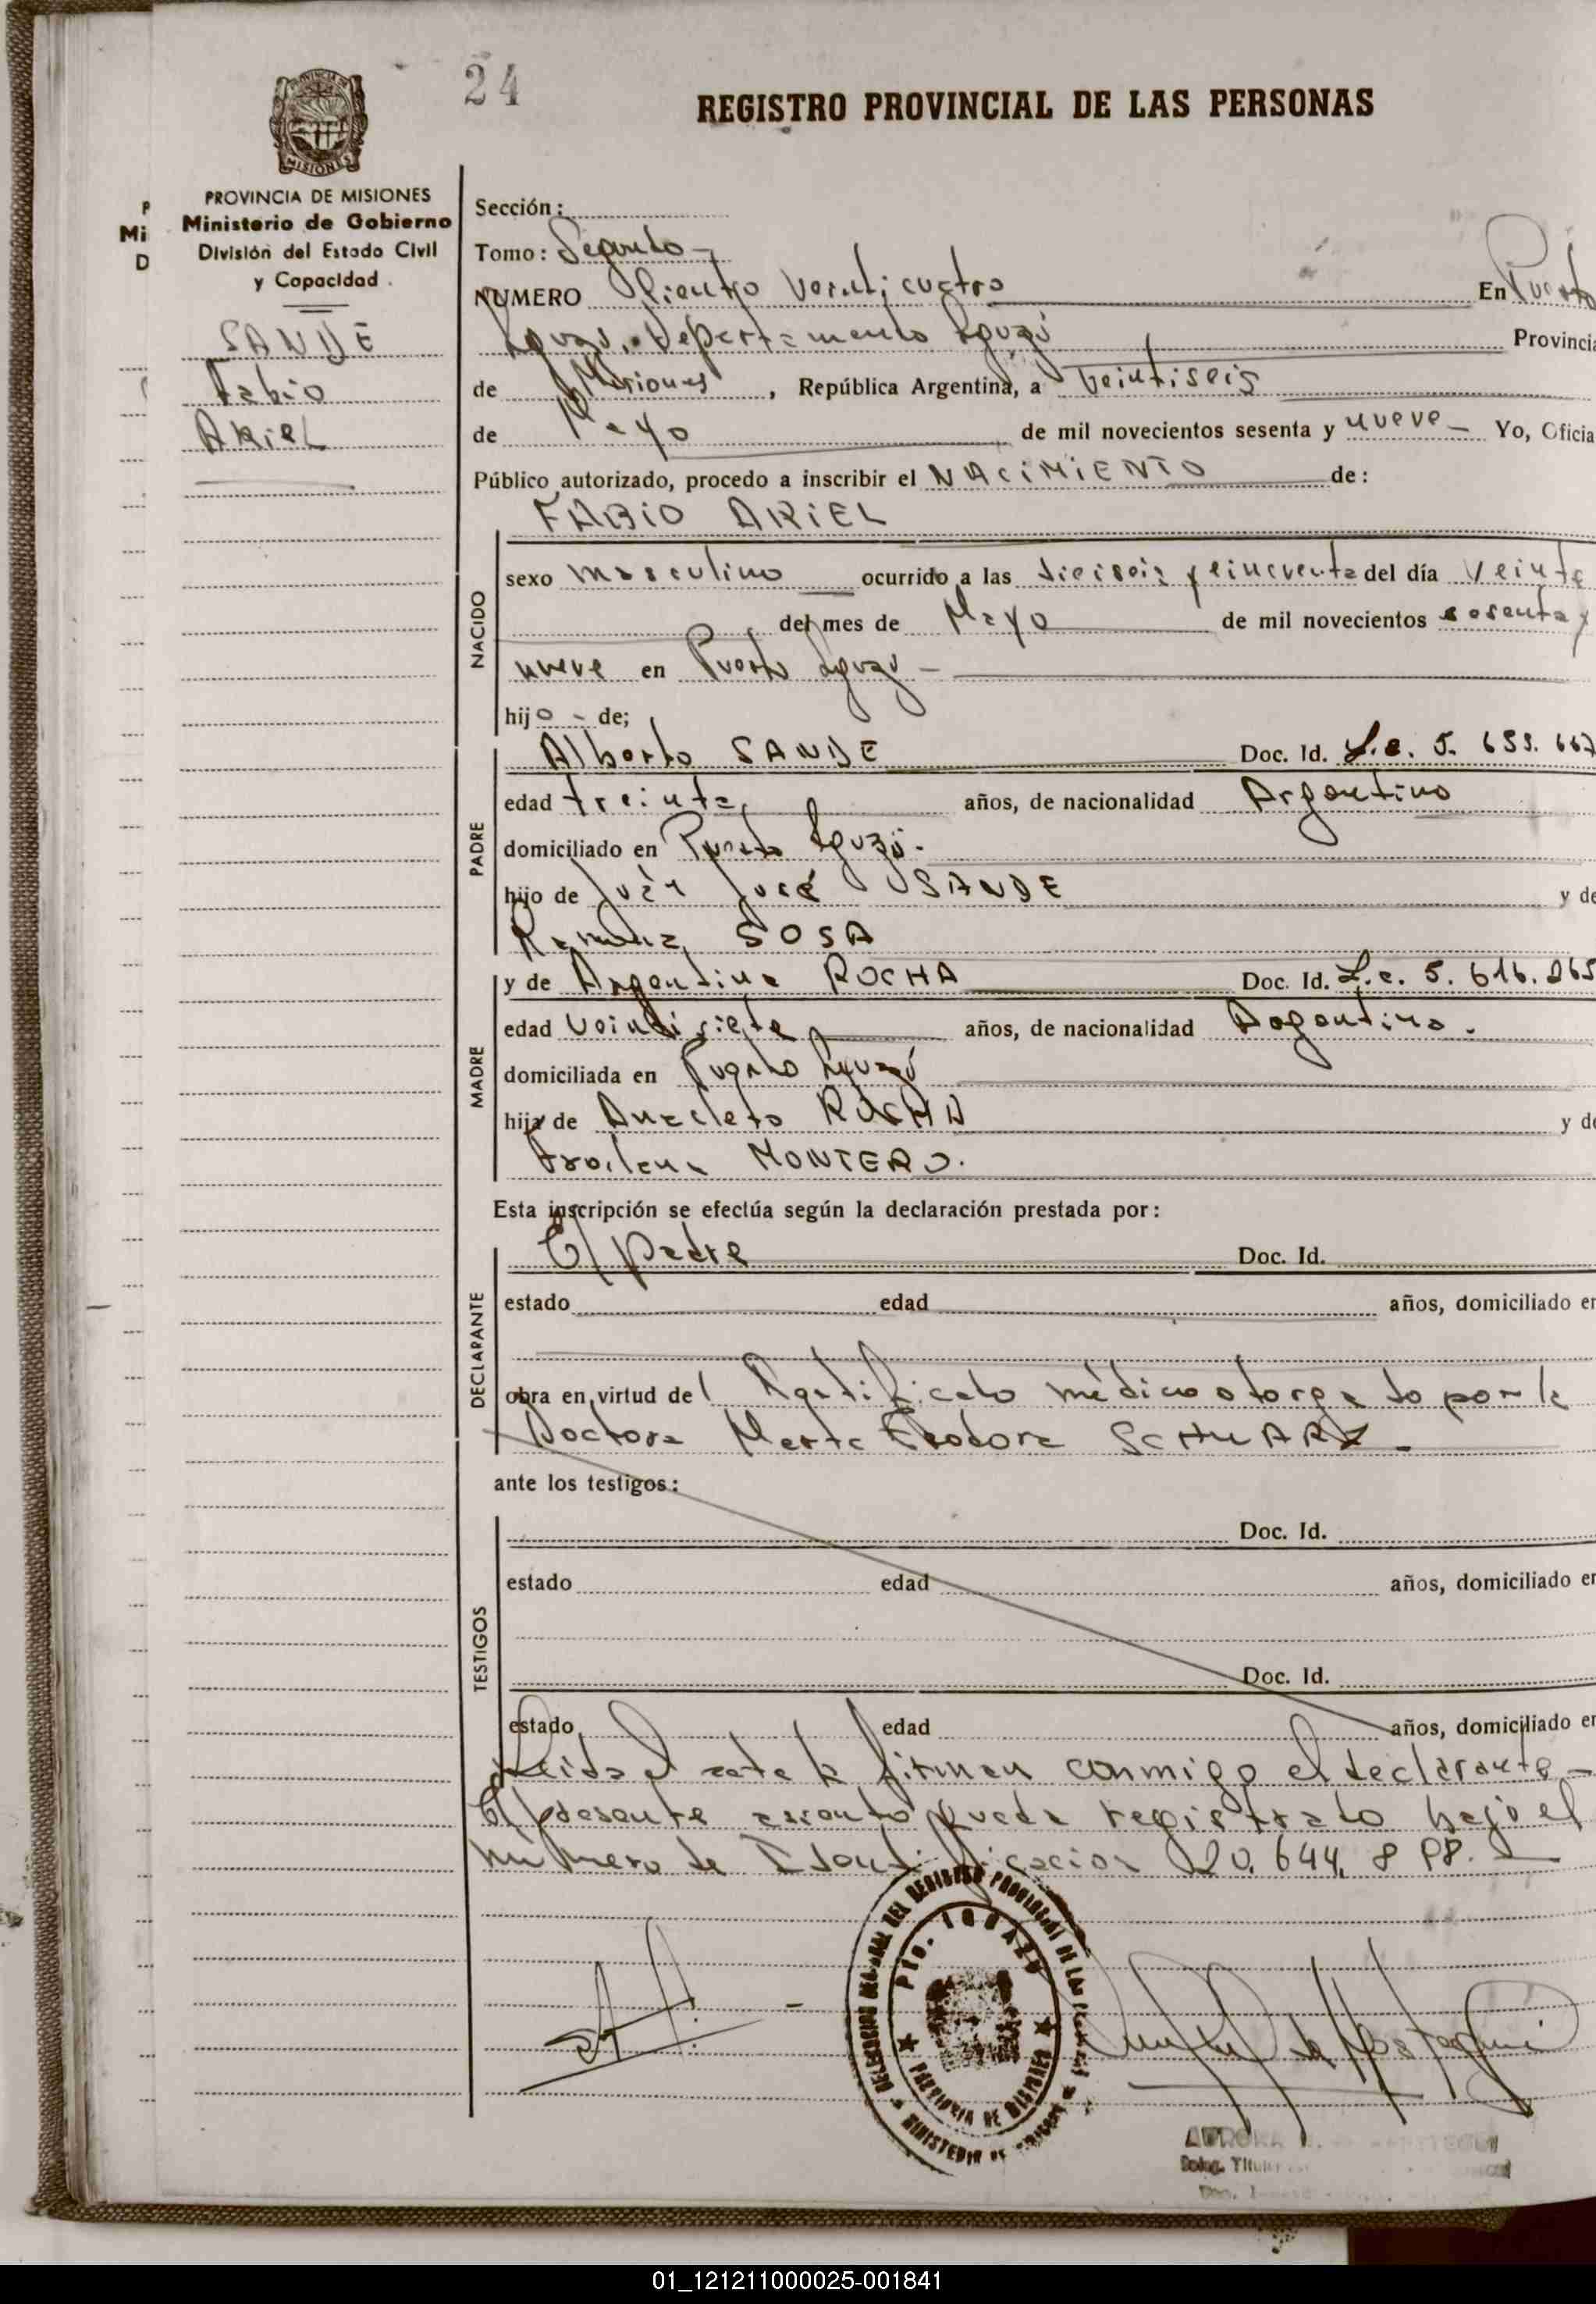 24
REGISTRO PROVINCIAL DE LAS PERSONAS
MISIONES
PROVINCIA DE MISIONES
Ministerio de Gobierno
División del Estado Civil
y Capacidad
SANDE
Fabio
ARIEL
P
Mi
D
Sección:
Tomo: Segundo
NUMERO Ciento Veinticuatro En Puerto
Iguazú, Departamento Iguazú Provincia
de Misiones, República Argentina, a veintiseis
de Mayo de mil novecientos sesenta y nueve Yo, Oficia
Público autorizado, procedo a inscribir el NACIMIENTO de:
FABIO ARIEL
NACIDO
sexo masculino ocurrido a las dieciseis y cincuenta del día Veinte
del mes de Mayo de mil novecientos sesenta y
nueve en Puerto Iguazú
hijo de;
PADRE
Alberto SANDE Doc. Id. L.e. 5. 653. 667
edad treinta años, de nacionalidad Argentino
domiciliado en Puerto Iguazú.
hijo de Juán José SANDE y de
Ramona SOSA
MADRE
y de Argentina ROCHA Doc. Id. L.c. 5. 616. 265
edad veintisiete años, de nacionalidad Argentina.
domiciliada en Puerto Iguazú
hija de Anacleto ROCHA y de
MONTERO.
Esta inscripción se efectúa según la declaración prestada por:
DECLARANTE
El padre Doc. Id.
estado edad años, domiciliado en
obra en virtud del Certificado médico otorgado por la
Doctora Marta Teodora SCHWARZ
ante los testigos:
TESTIGOS
Doc. Id.
estado edad años, domiciliado en
Doc. Id.
estado edad años, domiciliado en
Leida el acta la firman conmigo el declarante
El presente asiento queda registrado bajo el
número de Identificación 20. 644. 898.
DELEGACION DEL REGISTRO PROVINCIAL DE LAS PERSONAS
PTO. IGUAZU
PROVINCIA DE MISIONES
MINISTERIO DE GOBIERNO
AURORA
Deleg. Titular
01_121211000025-001841